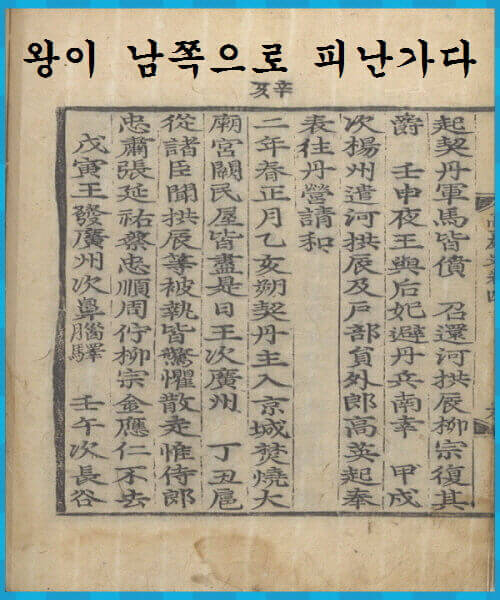 왕이 남쪽으로 피난가다
辛亥
起契丹軍馬皆僨 召還河拱辰柳宗復其
爵 壬申夜王與后妃避丹兵南幸 甲戌
次楊州遣河拱辰及戶部員外郎高英起奉
表往丹營請和
二年春正月乙亥朔契丹主入京城焚燒大
廟宮闕民屋皆盡是日王次廣州 丁丑扈
從諸臣聞拱辰等被執皆驚懼散走惟侍郎
忠肅張延祐蔡忠順周佇柳宗金應仁不去
戊寅王發廣州次鼻腦驛 壬午次長谷